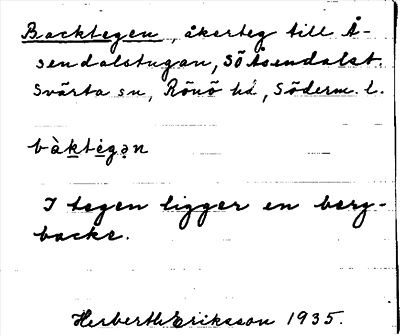 Backtegen, åkerteg till Å-
sendalstugan, SÖ Åsendalst.
Svärta sn, Rönö hd, Söderm. l.
bàktégən
I tegen ligger en berg-
backe.
Herberth Eriksson 1935.